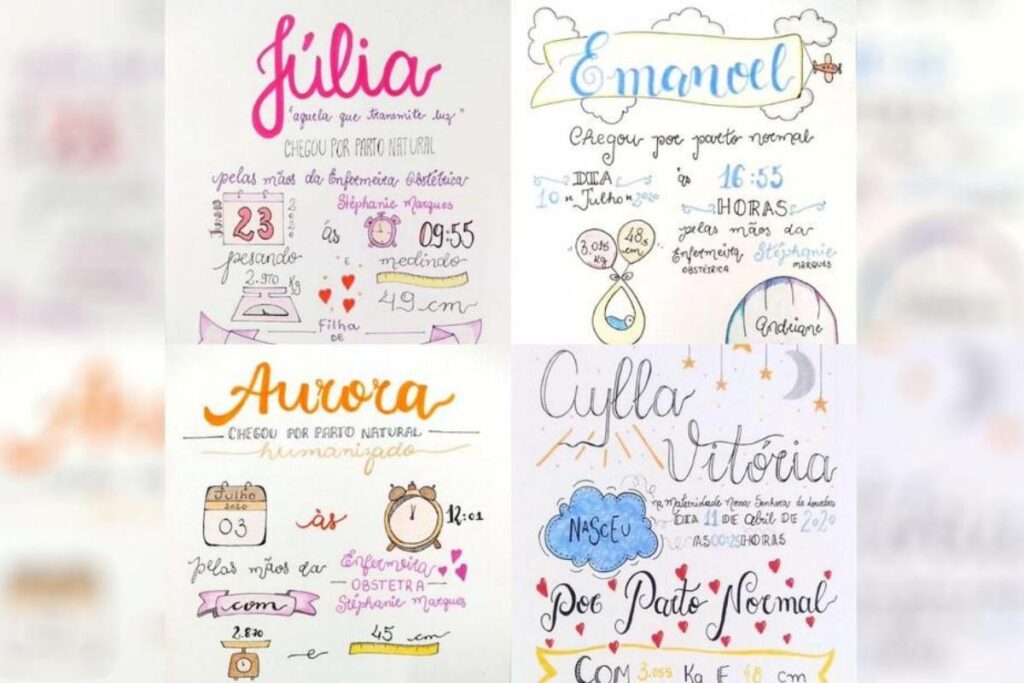 Júlia
"aquela que transmite luz"
CHEGOU POR PARTO NATURAL
pelas mãos da Enfermeira Obstétrica
Stéphanie Marques
JUNHO
23
2020
às
09:55
pesando
2.970 Kg
E
medindo
49 cm
Filha
DE
Emanoel
Chegou por parto normal
DIA
10 de Julho de 2020
às
16:55
HORAS
pelas mãos da
Enfermeira
OBSTÉTRICA
Stéphanie
MARQUES
3.095
Kg
48,5
cm
Andriane
Aurora
CHEGOU POR PARTO NATURAL
humanizado
Julho
2020
03
às
12:01
pelas mãos da
Enfermeira
OBSTETRA
Stéphanie Marques
com
2.870
e
45 cm
Aylla
Vitória
NASCEU
na Maternidade Nossa Senhora de Lourdes
DIA 11 DE Abril DE 2020
AS 00:25 HORAS
Por Parto Normal
COM 3.055 Kg E 48 cm